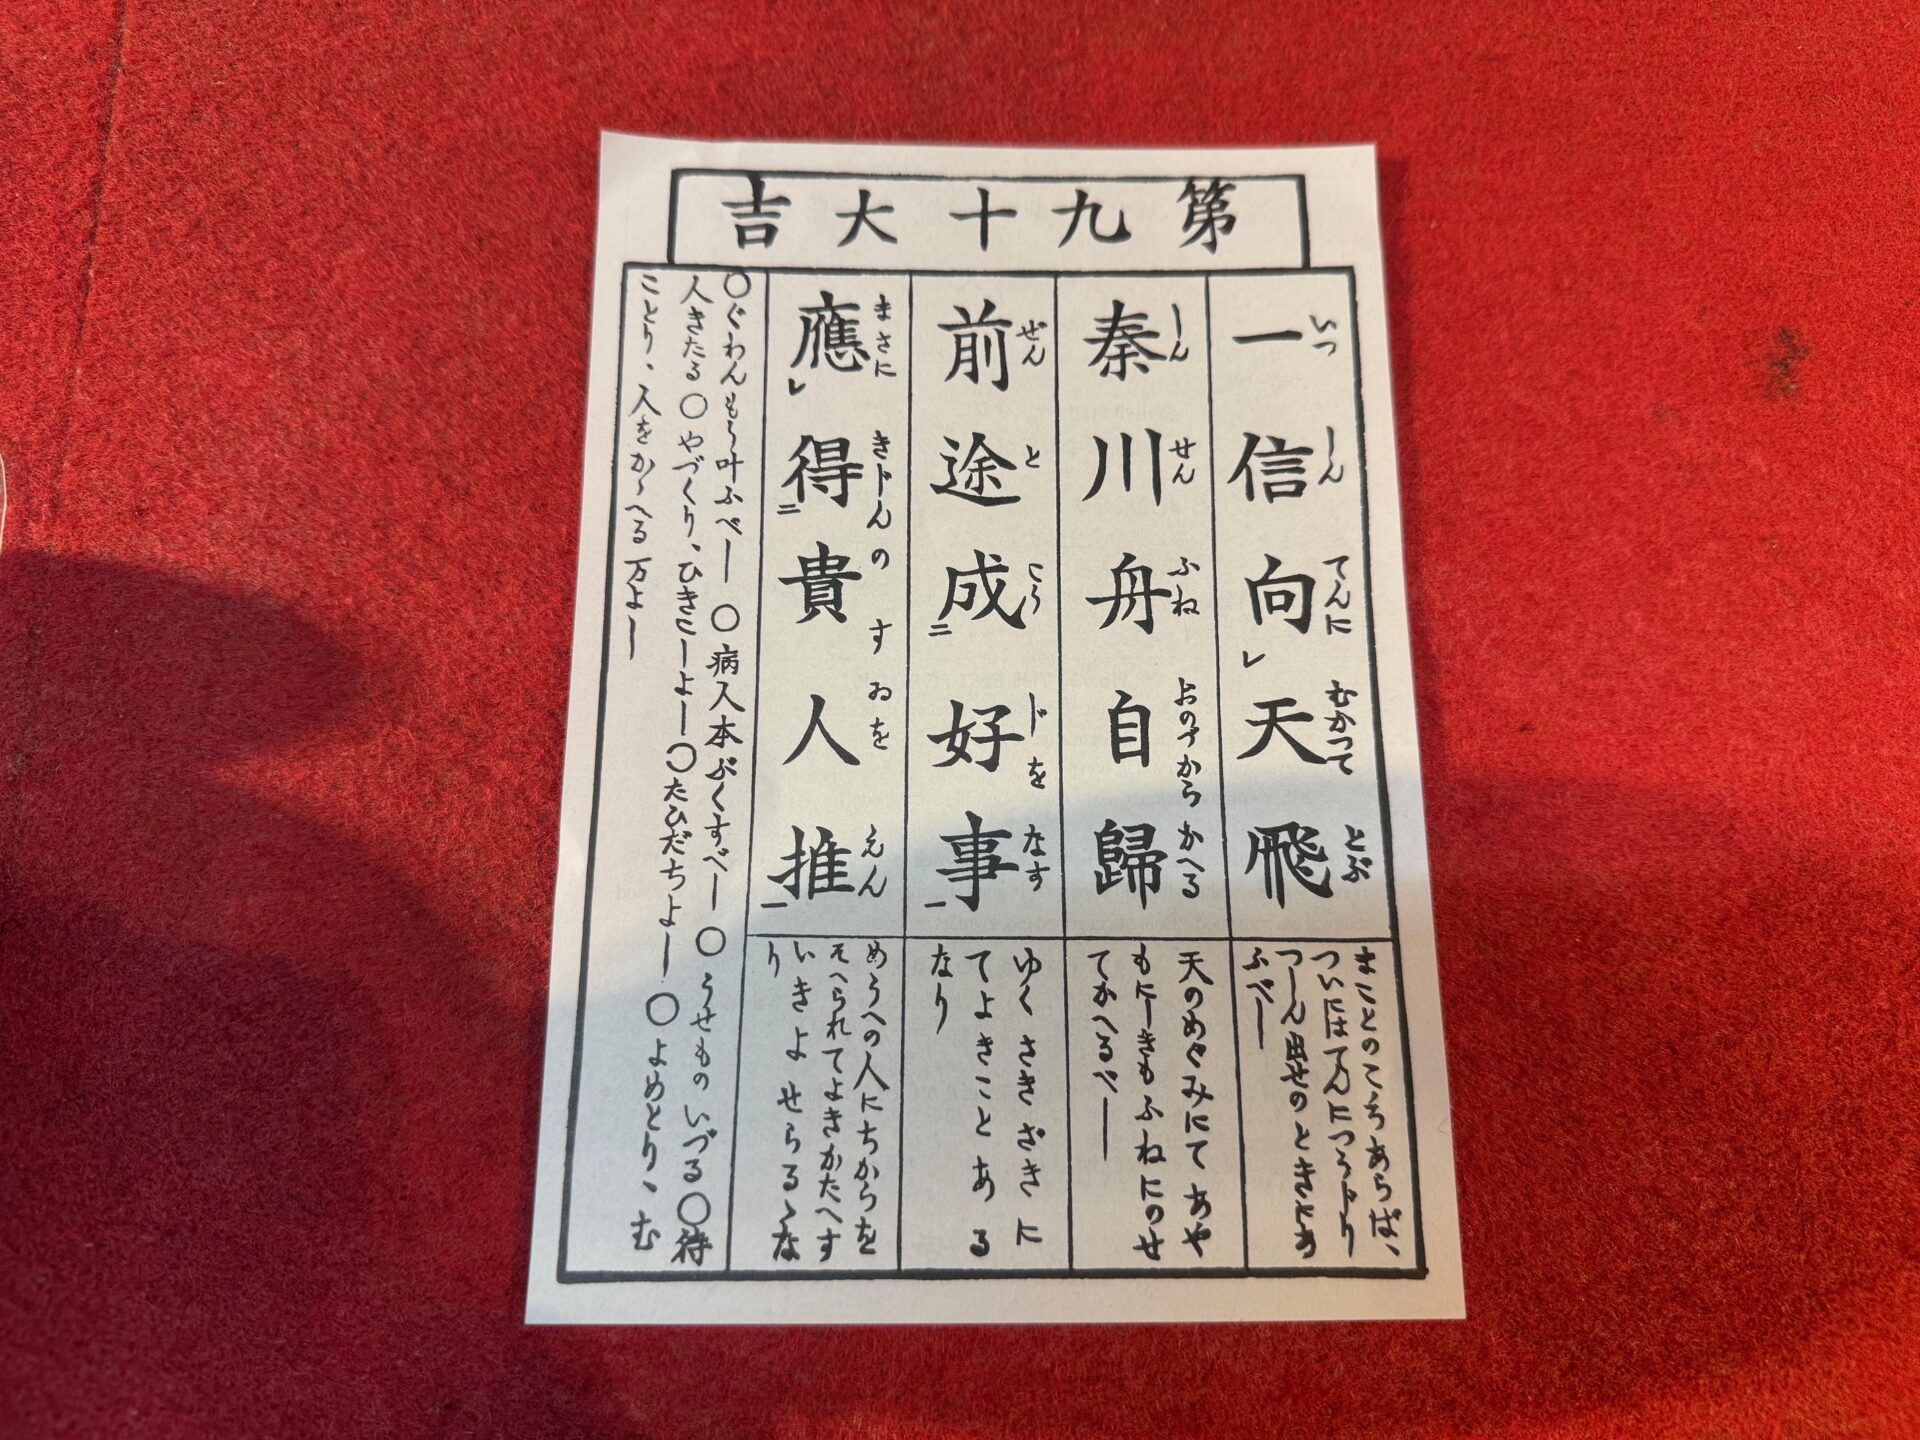 第九十大吉
一信向天飛
いつしんてんにむかつてとぶ
まことのこゝろあらば、
ついにはてんにつうじり
つしん出せのときにあ
ふべし
秦川舟自歸
しんせんふねおのづからかへる
天のめぐみにてあや
もにしきもふねにのせ
てかへるべし
前途成好事
ぜんとこうじをなす
ゆくさきざきに
てよきことある
なり
應得貴人推
まさにきじんのすゐをえん
めうへの人にちからを
そへられてよきかたへす
いきよせらるゝな
り
○ぐわんもう叶ふべし○病人本ぶくすべし○うせものいづる○待
人きたる○やづくり、ひきこしよし○たびだちよし○よめとり、む
ことり、人をかゝへる万よし